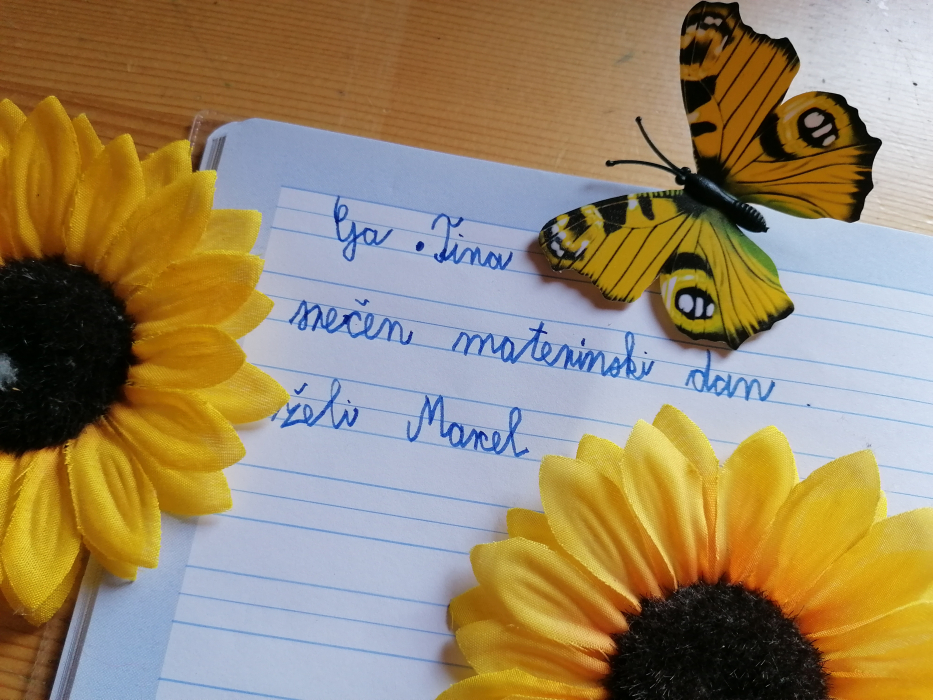 Ga. Tina
srečen materinski dan
želi Marcel